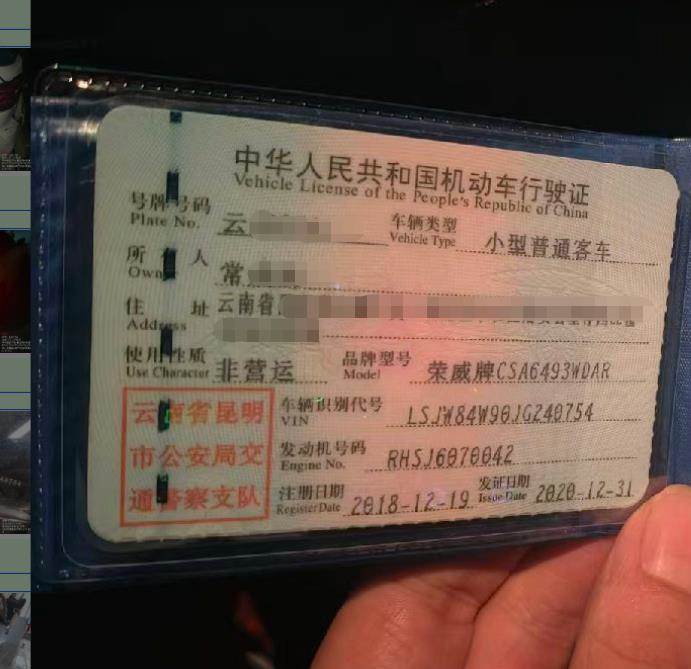 中华人民共和国机动车行驶证
Vehicle License of the People's Republic of China
号牌号码 云 车辆类型 小型普通客车
Plate No. Vehicle Type
所有人 常
Owner
住址 云南省
Address
使用性质 非营运 品牌型号 荣威牌CSA6493WDAR
Use Character Model
云南省昆明 车辆识别代号 LSJW84W90JG240754
VIN
市公安局交 发动机号码 RHSJ6070042
Engine No.
通警察支队 注册日期 2018-12-19 发证日期 2020-12-31
Register Date Issue Date